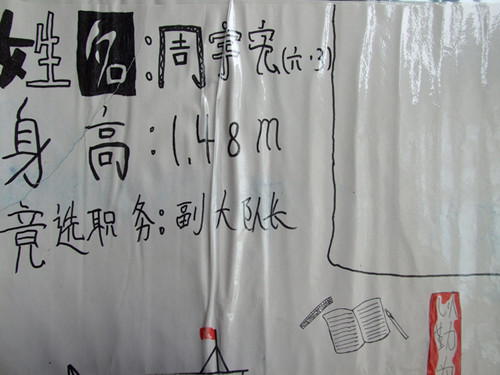 姓名:周宇宏(六·3)
身高:1.48m
竞选职务:副大队长
勤